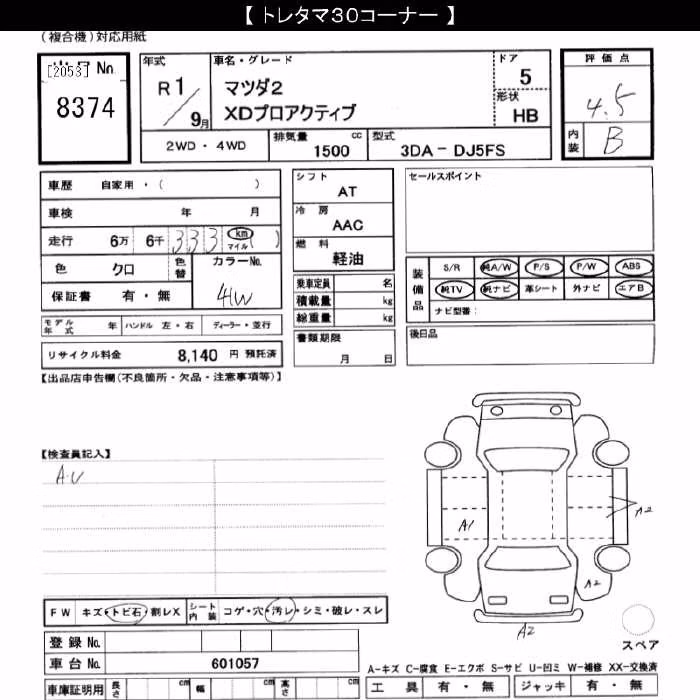 【 トレタマ30コーナー 】
(複合機)対応用紙
[2053] No.
8374
年式
R 1
9月
車名・グレード
マツダ2
XDプロアクティブ
ドア
5
形状
HB
2WD・4WD
排気量
1500 cc
型式
3DA－DJ5FS
評価点
4.5
内装
B
車歴 自家用・( )
車検 年 月
走行 6万 6千 333 km マイル ( )
色 クロ 色替 カラーNo. 41W
保証書 有・無
モデル年式 年 ハンドル 左・右 ディーラー・並行
リサイクル料金 8,140 円 預託済
シフト
AT
冷房
AAC
燃料
軽油
乗車定員 名
積載量 kg
総重量 kg
書類期限
月 日
セールスポイント
装備品
S/R 純A/W P/S P/W ABS
純TV 純ナビ 革シート 外ナビ エアB
ナビ型番：
後日品
【出品店申告欄(不良箇所・欠品・注意事項等)】
【検査員記入】
A・U
A1
A2
A2
A2
FW キズ・トビ石・割レX シート内装 コゲ・穴・汚レ・シミ・破レ・スレ
登録 No.
車台 No. 601057
スペア
A-キズ C-腐食 E-エクボ S-サビ U-凹ミ W-補修 XX-交換済
車庫証明用 長さ cm 幅 cm 高さ cm
工具 有・無 ジャッキ 有・無